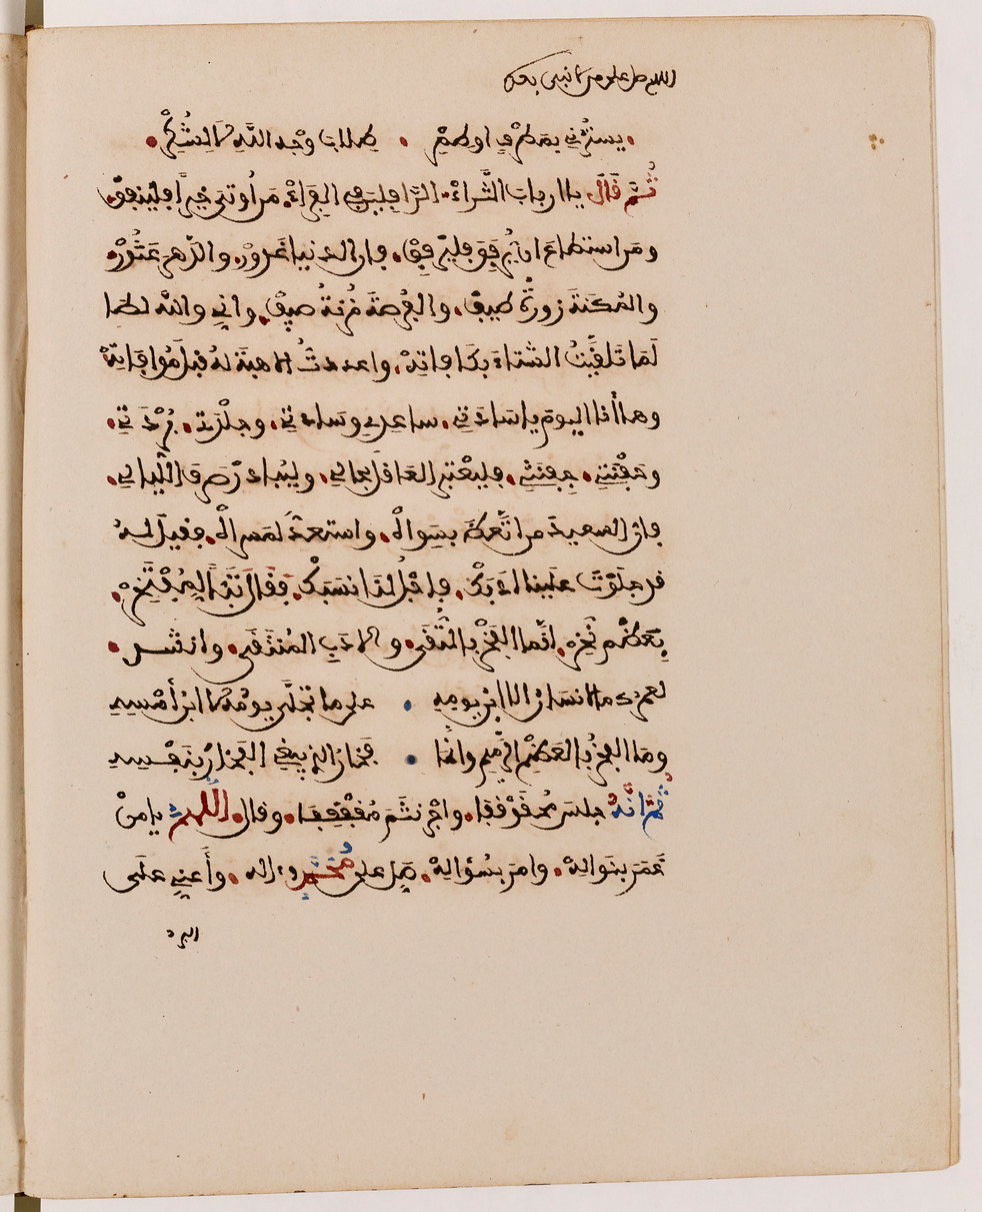 اللهم صل على من لا نبي بعده
يسترني بمطرف او طمر • طلاب وجه الله لا لشكر
ثم قال يا ارباب الثراء • الرافلين في الفراء • من اوتي خيرا فلينفق
ومن استطاع ان يرفق فليرفق • فان الدنيا غرور • والدهر عثور
والمكنة زورة طيف • والفرصة مزنة صيف • واني والله لطا
لما تلقيت الشتاء بكافاته • واعددت الاهبة له قبل موافاته
وها أنا اليوم يا سادتي • ساعدي وسادتي • وجلدتي • بردتي •
وحفنتي • جفنتي • فليعتبر العاقل بحالي • وليبادر صرف الليالي •
فان السعيد من اتعظ بسواه • واستعد لمسراه • فقيل له
قد جلوت علينا ادبك • فاجل لنا نسبك • فقال تبا لمفتخر •
بعظم نخر • انما الفخر بالتقى • والادب المنتقى • وانشد •
لعمرك ما الانسان الا ابن يومه • على ما تجلى يومه لا ابن أمسه
وما الفخر بالعظم الرميم وانما • فخار الذي يبغي الفخار بنفسه
ثم انه جلس محقوقفا • واجرنثم مقفقفا • وقال • اللهم يا من
غمر بنواله • وامر بسؤاله • صل على محمد وءاله • وأعني على
البرد